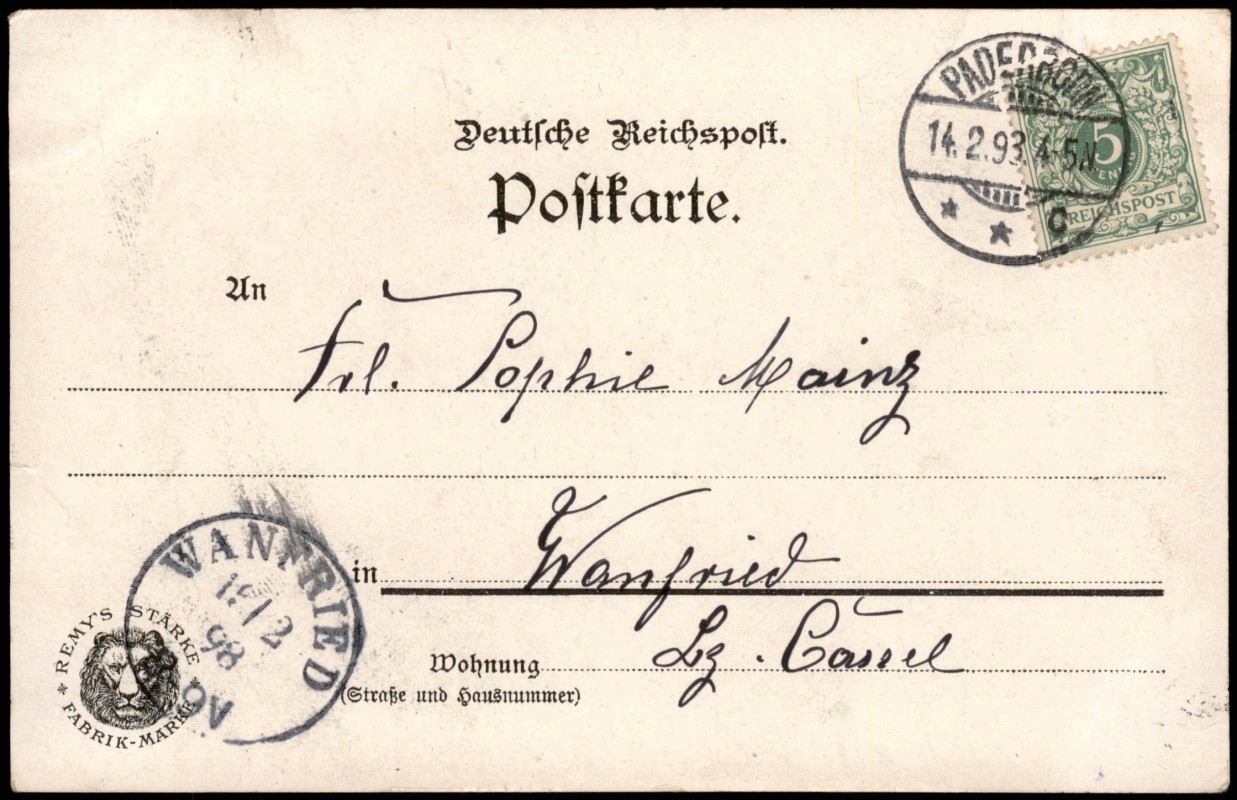 Deutsche Reichspost.
Postkarte.
PADERBORN
14.2.98. 4-5.N.
* * C
5
REICHSPOST
An
Frl. Sophie Mainz
in Wanfried
Bz. Cassel
Wohnung
(Straße und Hausnummer)
WANFRIED
2
98
REMY'S STÄRKE
* FABRIK-MARKE *